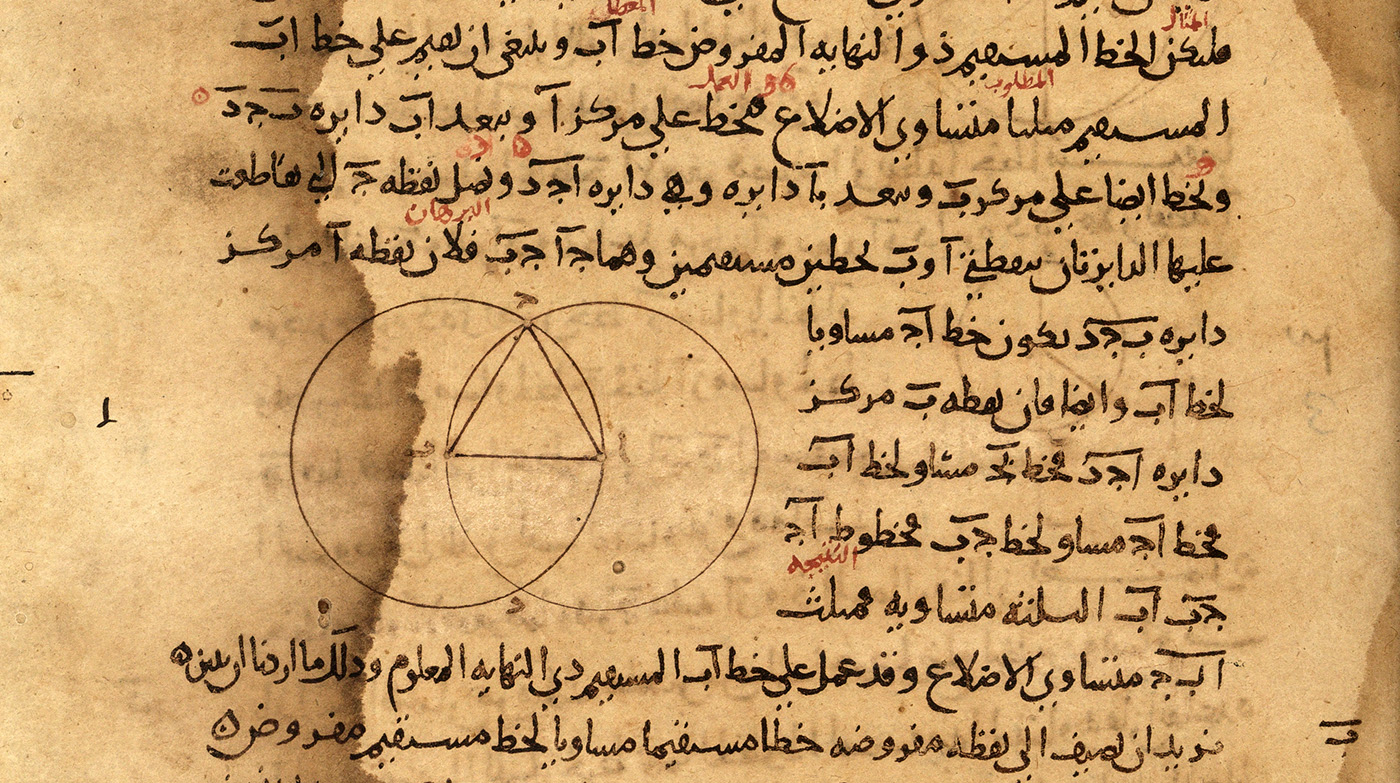 المثال
المعطى
فليكن الخط المستقيم ذو النهايه المفروض خط اب وينبغي ان نقيم على خط اب
المطلوب
العمل
المستقيم مثلثا متساوي الاضلاع فنخط على مركز ا وببعد اب دايره ب ج د
ونخط ايضا على مركز ب وببعد ب ا دايره وهي دايره ا ج د ونصل نقطه ج التي تقاطعت
البرهان
عليها الدايرتان بنقطتي ا و ب بخطين مستقيمين وهما ج ا ج ب فلان نقطه ا مركز
دايره ب ج د يكون خط ا ج مساويا
لخط اب وايضا فان نقطه ب مركز
دايره ا ج د فخط ب ج مساو لخط اب
فخط ا ج مساو لخط ج ب فخطوط ا ج
النتيجه
ج ب اب الثلثه متساويه فمثلث
ا ب ج متساوي الاضلاع وقد عمل على خط اب المستقيم ذي النهايه المعلوم وذلك ما اردنا ان نبين
ب
نريد ان نضيف الى نقطه مفروضه خطا مستقيما مساويا لخط مستقيم مفروض
ج
ب
ا
د
ا